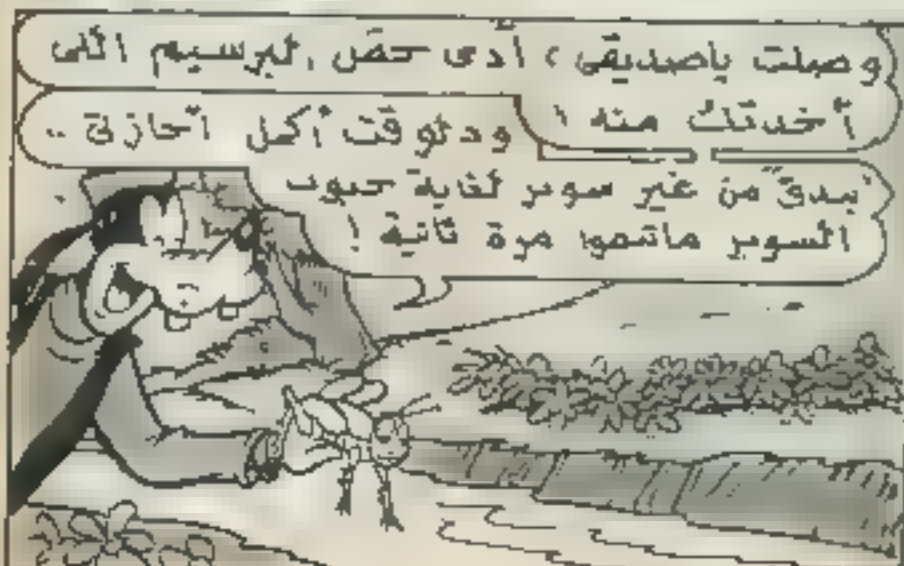 وصلت ياصديقى، أدى حقل البرسيم اللى
أخدتك منه !
ودلوقت أكمل أجازتى ..
بندق من غير سوبر لغاية حبوب
السوبر ماتنمو مرة ثانية !